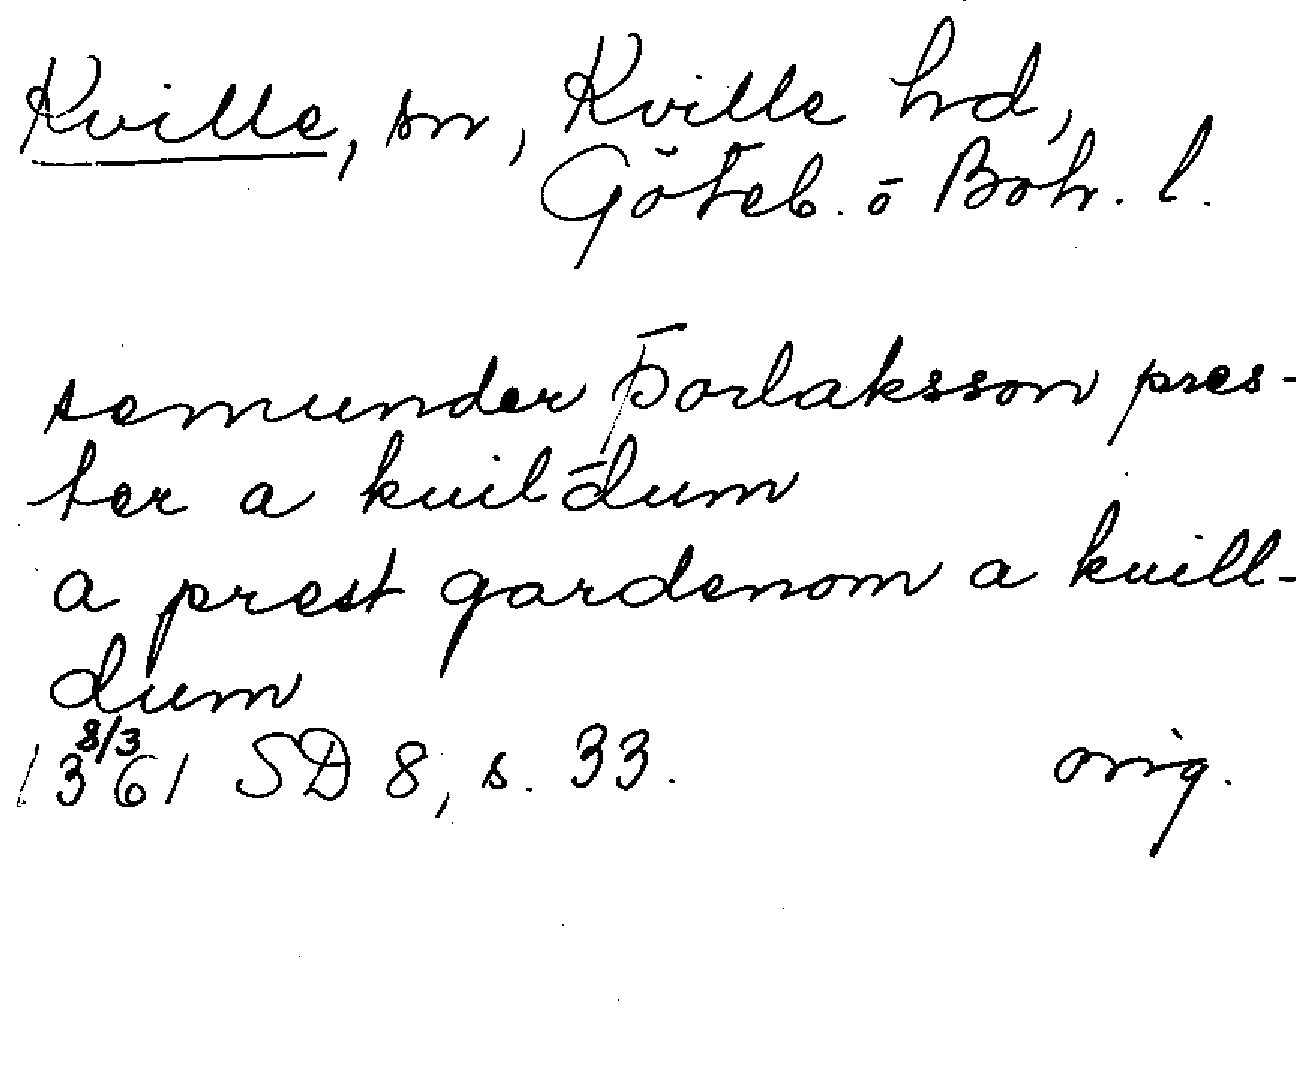 Kville, sn, Kville hd,
Göteb. o Boh. l.
semunder Þorlaksson pres-
ter a kuildum
a prest gardenom a kuill-
dum
8/3
1361 SD 8, s. 33. orig.